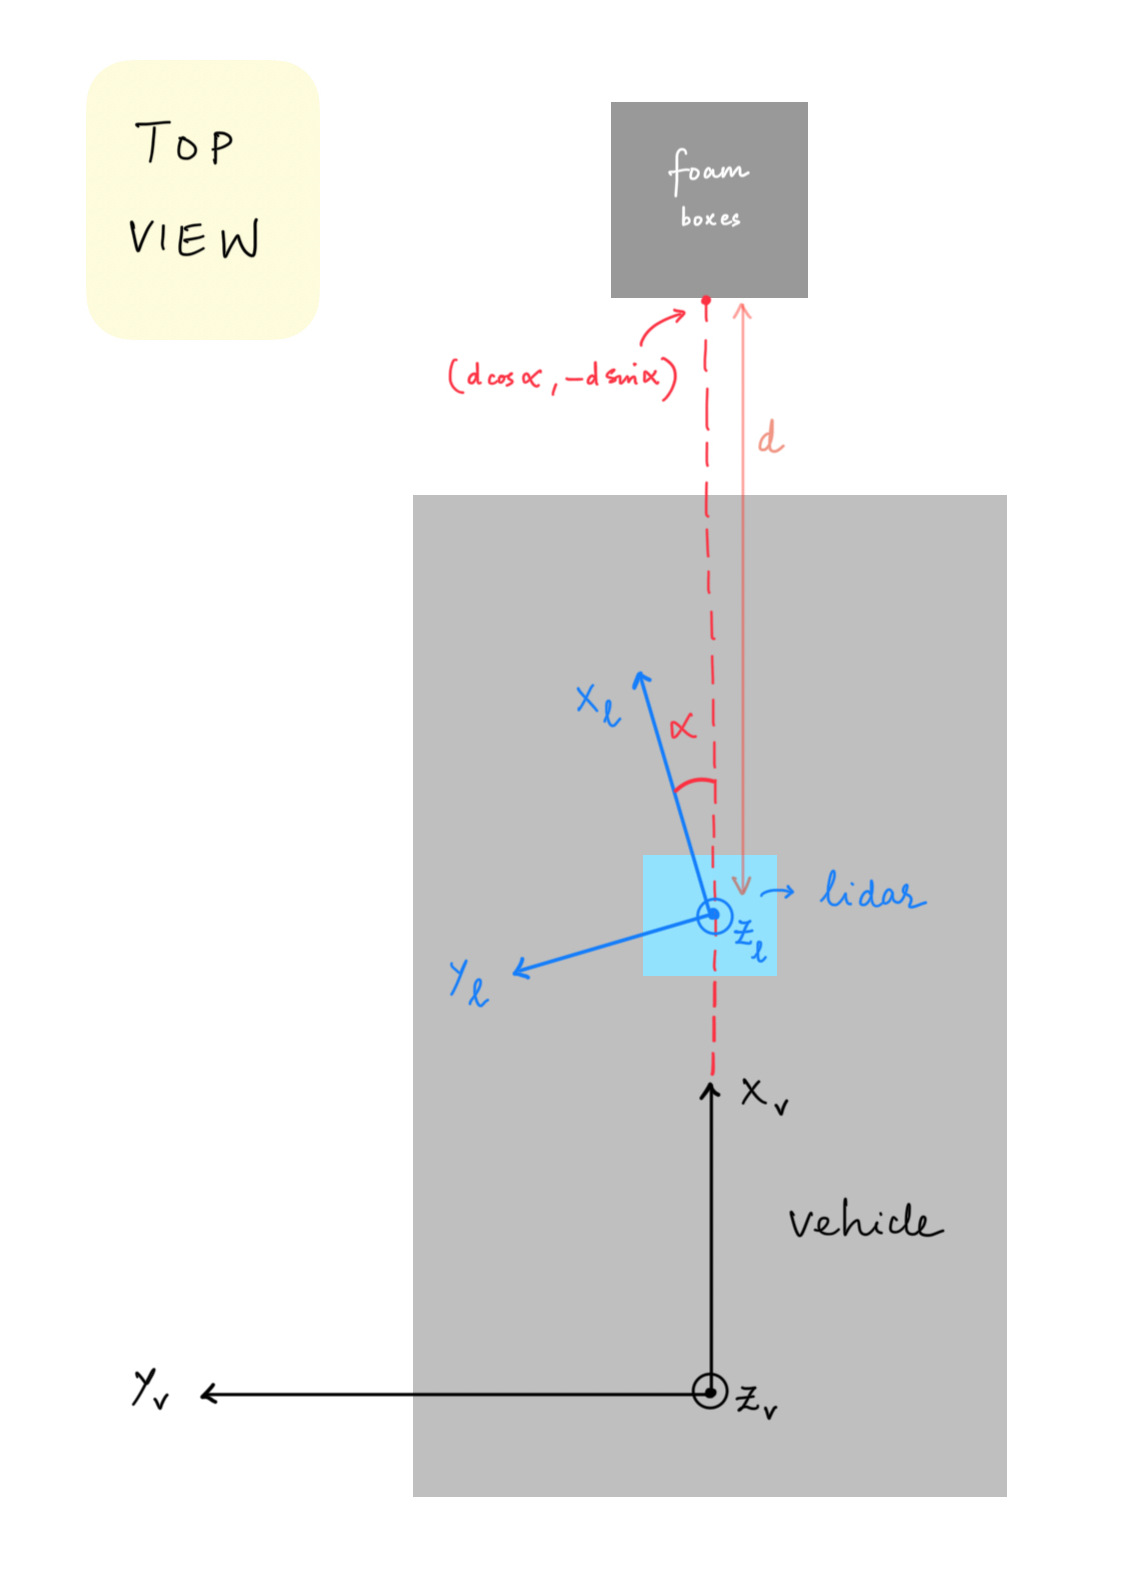 TOP
VIEW
foam
boxes
(d cos α, -d sin α)
d
x_l
α
lidar
z_l
y_l
x_v
vehicle
y_v
z_v